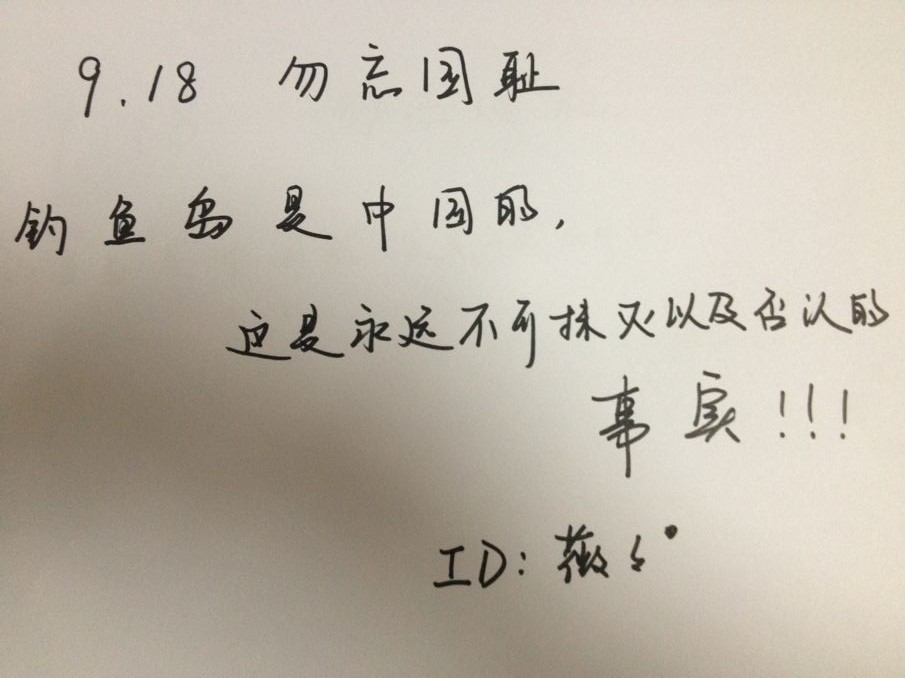 9.18 勿忘国耻
钓鱼岛是中国的,
这是永远不可抹灭以及否认的
事实!!!
ID:薇